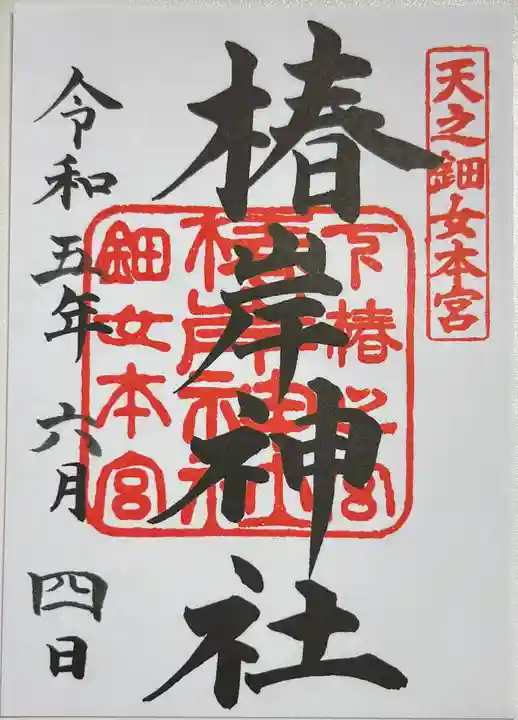 天之鈿女本宮
椿岸神社
下椿之宮
椿岸神社
鈿女本宮
令和五年六月四日